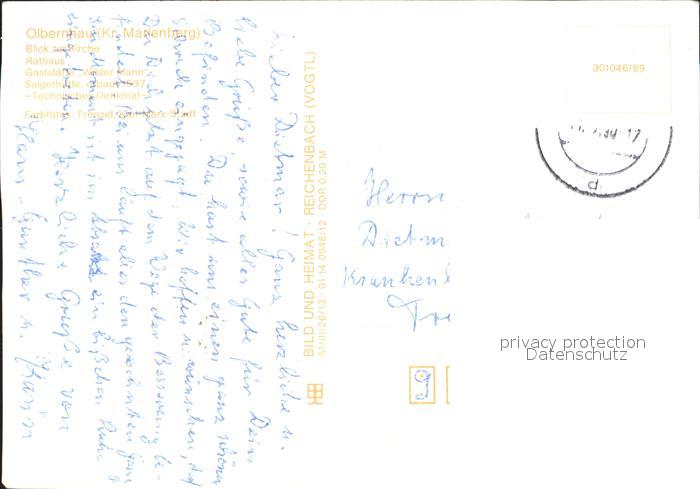 Olbernhau (Kr. Marienberg)
Blick zur Kirche
Rathaus
Gaststätte „Wilder Mann"
Saigerhütte, erbaut 1537
-Technisches Denkmal-
Farbfotos: Frenzel, Karl-Marx-Stadt
Lieber Dietmar! Ganz herzliche u.
liebe Grüße, sowie alles Gute für Dein
Befinden. Du hast uns einen ganz schönen
Schreck eingejagt. Wir hoffen u. wünschen, daß
Du Dich jetzt auf dem Wege der Besserung be-
findest. Bei uns läuft alles den gewohnten
ein bißchen Ruhe
Herzliche Grüße von
Hans-Günther u.
BILD UND HEIMAT · REICHENBACH (VOGTL)
A1/III/26/13 01 14 0948/12 DDR 0,20 M
301046/89
Herrn
Dietm
Krankenh
privacy protection
Datenschutz
9